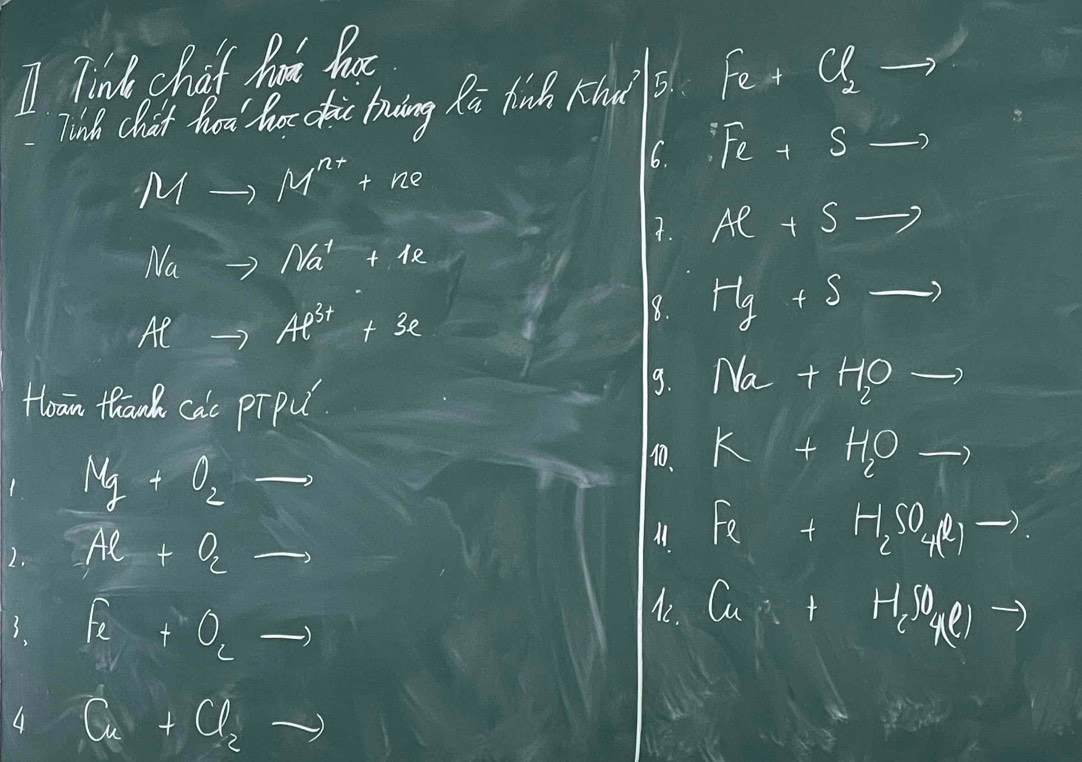 II Tính chất hoá học.
- Tính chất hoá học đặc trưng là tính khử
M → Mⁿ⁺ + ne
Na → Na⁺ + 1e
Al → Al³⁺ + 3e
Hoàn thành các PTPƯ.
1. Mg + O₂ →
2. Al + O₂ →
3. Fe + O₂ →
4 Cu + Cl₂ →
5. Fe + Cl₂ →
6. Fe + S →
7. Al + S →
8. Hg + S →
9. Na + H₂O →
10. K + H₂O →
11. Fe + H₂SO₄(l) →.
12. Cu + H₂SO₄(l) →